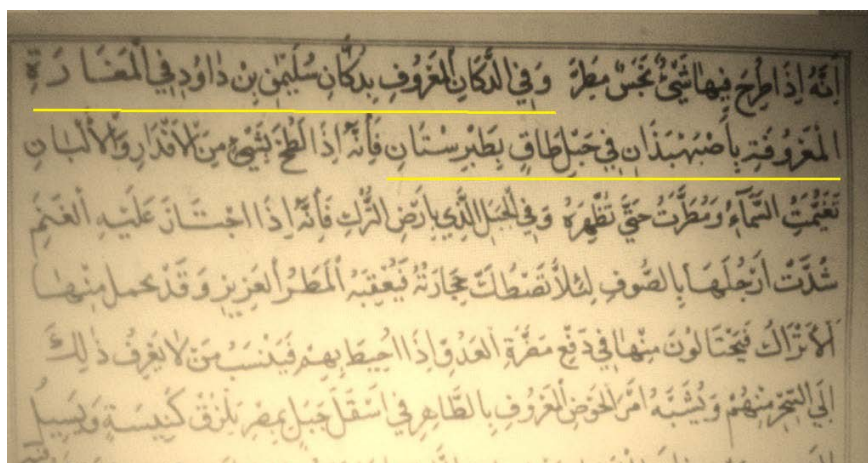 اِنَّهُ اِذَا طُرِحَ فِيهَا شَيْئٌ نَجِسٌ مَطِرَ وَفِي الدُّكَّانِ الْمَعْرُوفِ بِدُكَّانِ سُلَيْمٰنَ بْنِ دَاوُدَ فِي الْمَغَارَةِ
الْمَعْرُوفَةِ بِاَصْبَهْبَذَانِ فِي جَبَلِ طَاقٍ بِطَبَرِسْتَانِ فَاَنَّهُ اِذَا لُطِخَ بِشَيْئٍ مِنَ الْاَقْذَارِ وَالْاَلْبَانِ
تَغَيَّمَتِ السَّمَآءُ وَمَطَرَتْ حَتَّى تُطَهِّرَهُ وَفِي الْجَبَلِ الَّذِي بِاَرْضِ التُّرْكِ فَاَنَّهُ اِذَا اجْتَازَ عَلَيْهِ الْغَنَمُ
شُدَّتْ اَرْجُلُهَا بِالصُّوفِ لِئَلَّا تَصْطَكَّ حِجَارَتُهُ فَيُعْقِبَهُ الْمَطَرُ الْغَزِيرُ وَقَدْ يحمل مِنْهَا
الْاَتْرَاكُ فَيَحْتَالُونَ مِنْهَا فِي دَفْعِ مَضَرَّةِ الْعَدُوِّ اِذَا اُحِيطَ بِهِمْ فَيَنْسِبُ مَنْ لَا يَعْرِفُ ذٰلِكَ
اِلَي السِّحْرِ مِنْهُمْ وَيُشْبِهُ اَمْرَ الْحَوْضِ الْمَعْرُوفِ بِالطَّاهِرِ فِي اَسْفَلِ جَبَلٍ بِمِصْرَ بِلِزْقِ كَنِيسَةٍ وَيَسِيلُ